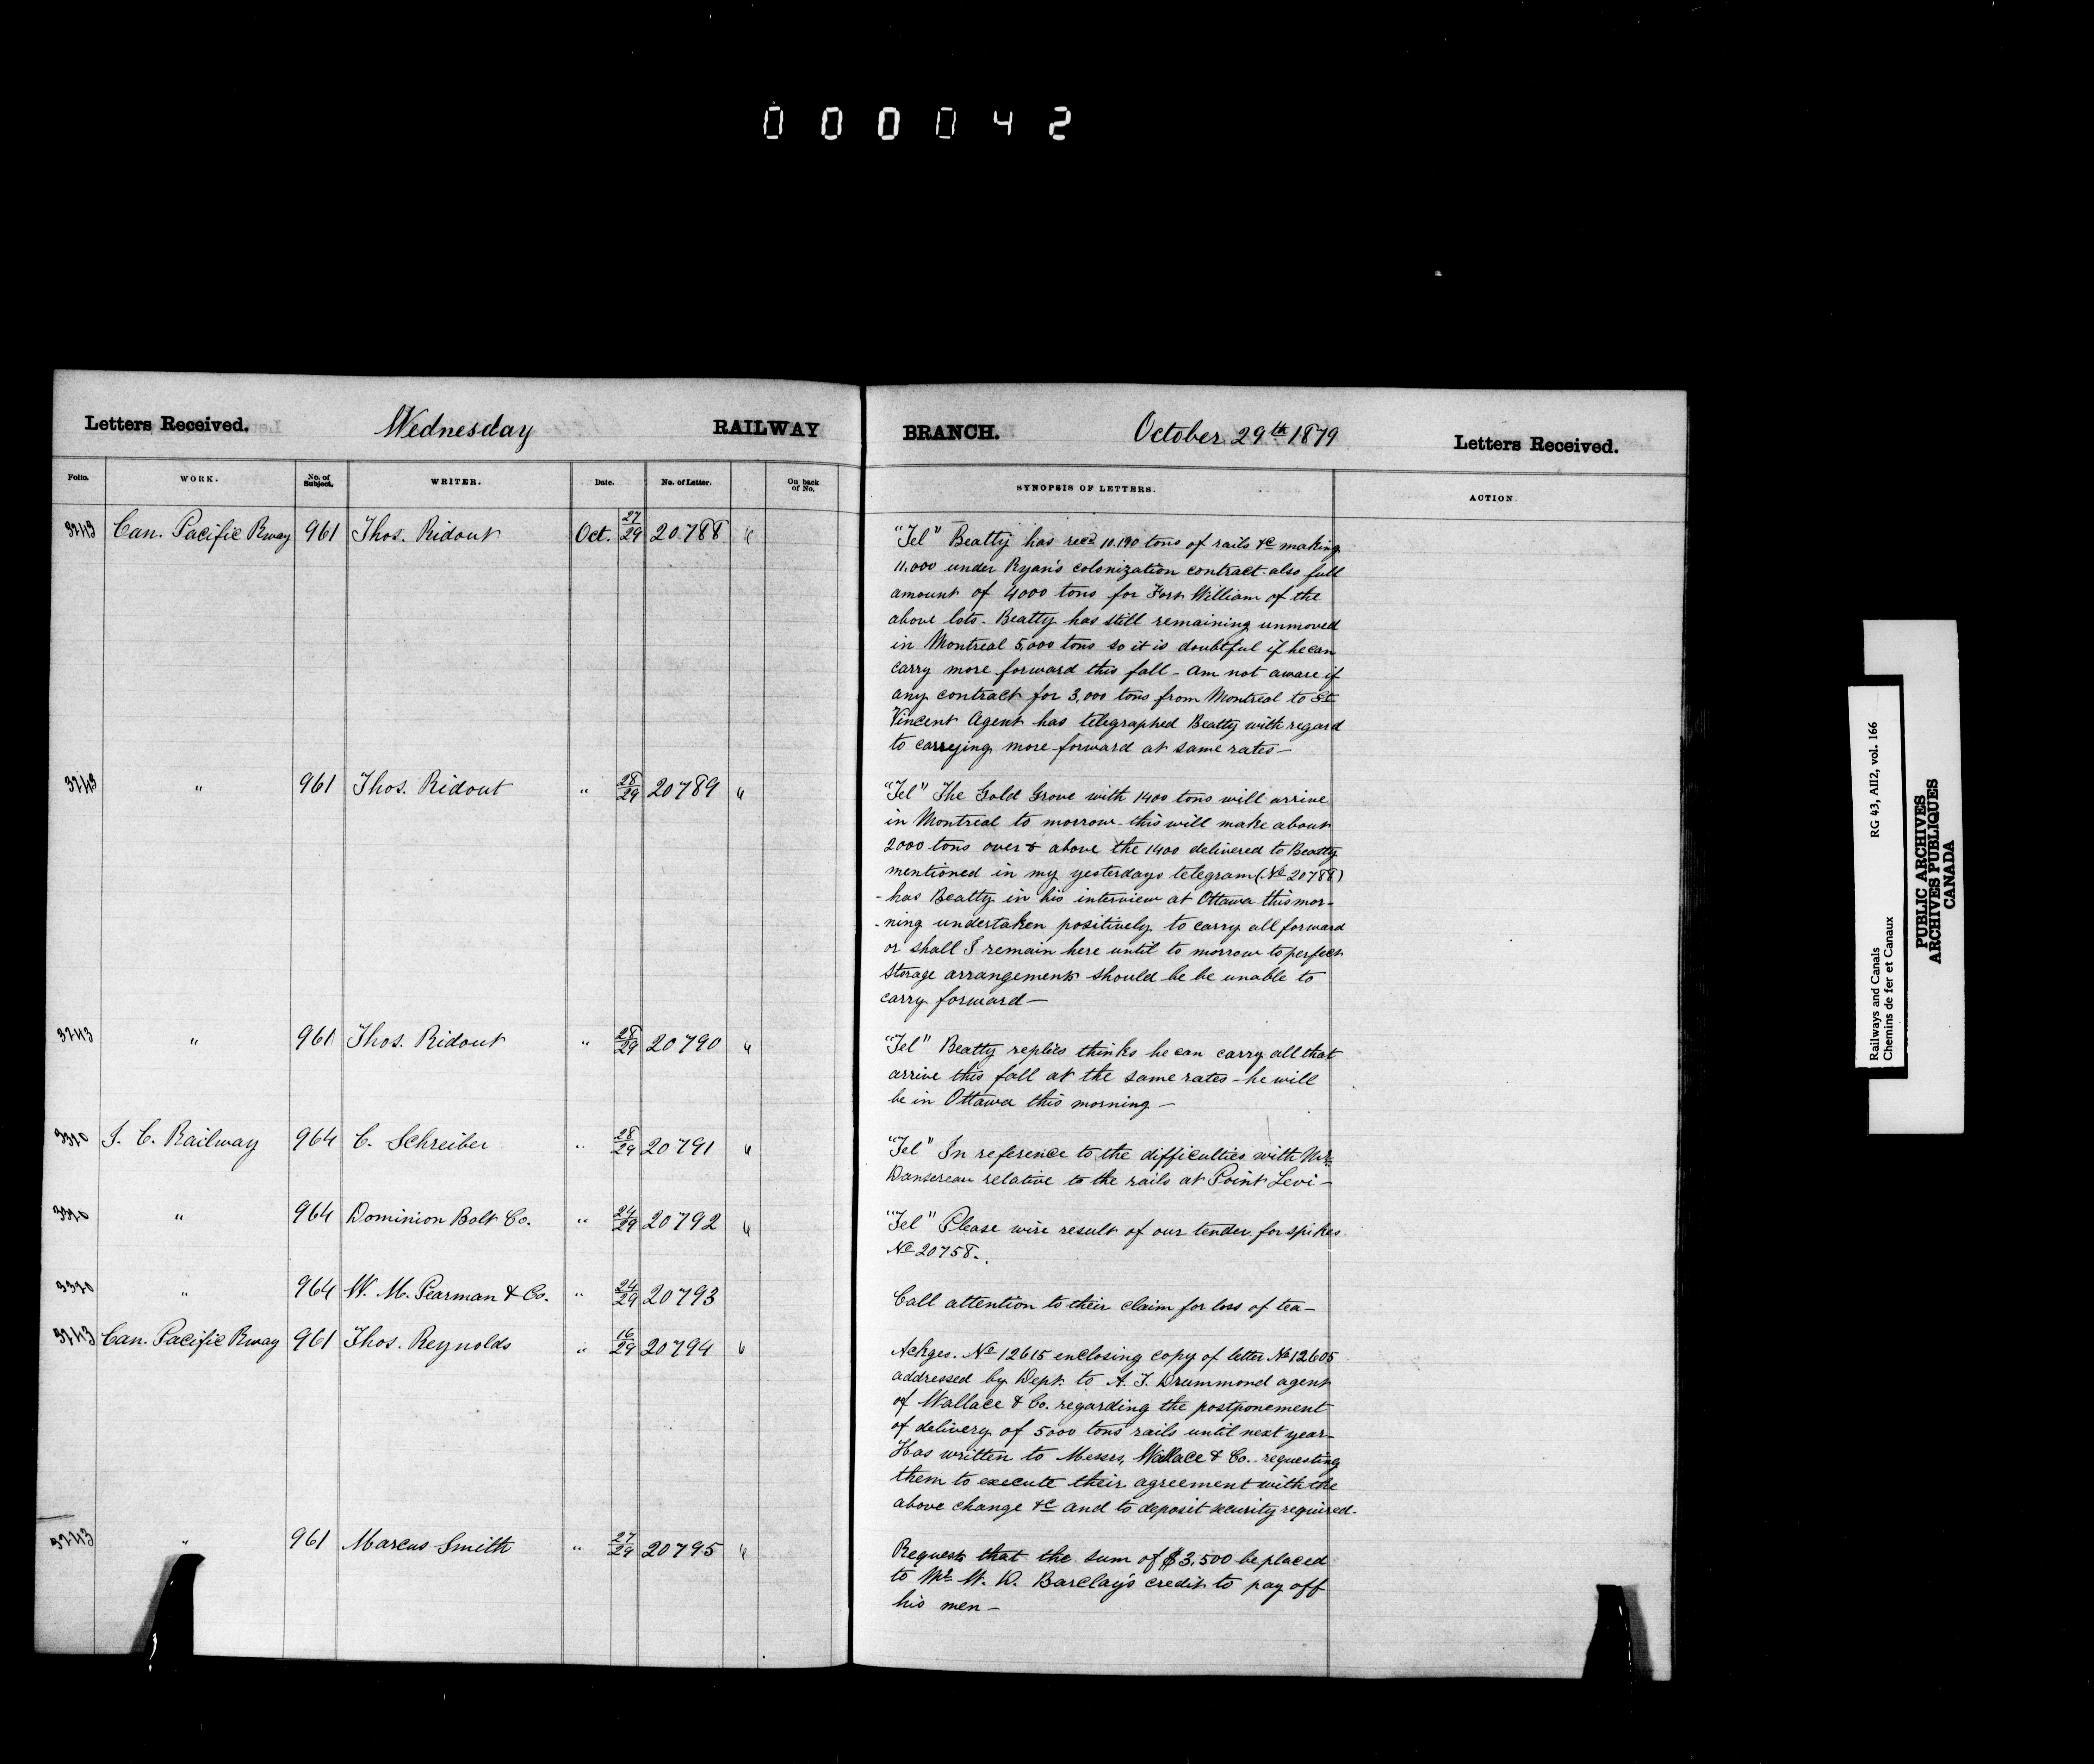 000042
Letters Received. Wednesday RAILWAY BRANCH. October 29th 1879 Letters Received.
Folio. WORK. No. of Subject. WRITER. Date. No. of Letter. On back of No. SYNOPSIS OF LETTERS. ACTION.
3243 Can. Pacific Rway 961 Thos. Ridout Oct. 27/29 20788 "
"Tel" Beatty has recd 10.190 tons of rails &c making
11.000 under Ryan's colonization contract also full
amount of 4000 tons for Fort William of the
above lots. Beatty has still remaining unmoved
in Montreal 5,000 tons so it is doubtful if he can
carry more forward this fall - am not aware if
any contract for 3,000 tons from Montreal to St
Vincent Agent has telegraphed Beatty with regard
to carrying more forward at same rates -
3243 " 961 Thos. Ridout " 28/29 20789 "
"Tel" The Gold Grove with 1400 tons will arrive
in Montreal to morrow - this will make about
2000 tons over & above the 1400 delivered to Beatty
mentioned in my yesterdays telegram (No 20788)
- has Beatty in his interview at Ottawa this mor-
-ning undertaken positively to carry all forward
or shall I remain here until to morrow to perfect
storage arrangements should be be unable to
carry forward -
3243 " 961 Thos. Ridout " 28/29 20790 "
"Tel" Beatty replies thinks he can carry all that
arrive this fall at the same rates - he will
be in Ottawa this morning -
3320 I. C. Railway 964 C. Schreiber " 28/29 20791 "
"Tel" In reference to the difficulties with Mr.
Dansereau relative to the rails at Point Levi -
3320 " 964 Dominion Bolt Co. " 24/29 20792 "
"Tel" Please wire result of our tender for spikes
No 20758.
3320 " 964 W. M. Pearman & Co. " 24/29 20793
Call attention to their claim for loss of tea -
3243 Can. Pacific Rway 961 Thos. Reynolds " 16/29 20794 "
Ackges. No 12615 enclosing copy of letter No 12605
addressed by Dept. to A. T. Drummond agent
of Wallace & Co. regarding the postponement
of delivery of 5000 tons rails until next year -
Has written to Messrs, Wallace & Co. requesting
them to execute their agreement with the
above change &c and to deposit security required.
3243 " 961 Marcus Smith " 27/29 20795 "
Requests that the sum of $3,500 be placed
to Mr. W. D. Barclay's credit to pay off
his men -
Railways and Canals RG 43, AII2, vol. 166
Chemins de fer et Canaux
PUBLIC ARCHIVES
ARCHIVES PUBLIQUES
CANADA